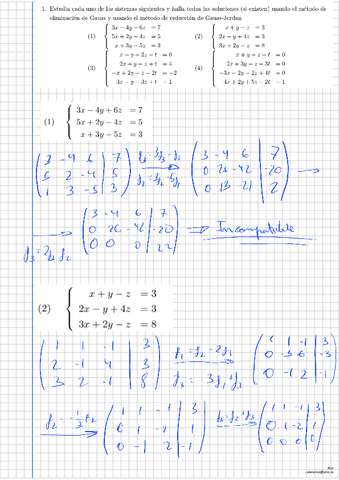 1. Estudia cada uno de los sistemas siguientes y halla todas las soluciones (si existen) usando el método de
eliminación de Gauss y usando el método de reducción de Gauss-Jordan
(1) { 3x − 4y + 6z = 7
5x + 2y − 4z = 5
x + 3y − 5z = 3
(2) { x + y − z = 3
2x − y + 4z = 3
3x + 2y − z = 8
(3) { x − y − 2z − t = 0
2x + y − z + t = 4
−x + 2y − 2t = −2
3x − y − 3z + t − 1
(4) { x + y + z − t = 0
2x + 3y − 3t = 0
−3x − 2y − 2z + 4t = 0
4x + 2y + 5z − 2t − 1
(1) { 3x − 4y + 6z = 7
5x + 2y − 4z = 5
x + 3y − 5z = 3
( 3 -4 6 | 7
5 2 -4 | 5
1 3 -5 | 3 )
( 3 -4 6 | 7
0 26 -42 | -20
0 13 -21 | 2 )
( 3 -4 6 | 7
0 26 -42 | -20
0 0 0 | 22 )
⇒ Incompatible
(2) { x + y − z = 3
2x − y + 4z = 3
3x + 2y − z = 8
( 1 1 -1 | 3
2 -1 4 | 3
3 2 -1 | 8 )
( 1 1 -1 | 3
0 -3 6 | -3
0 -1 2 | -1 )
( 1 1 -1 | 3
0 1 -2 | 1
0 -1 2 | -1 )
( 1 1 -1 | 3
0 1 -2 | 1
0 0 0 | 0 )